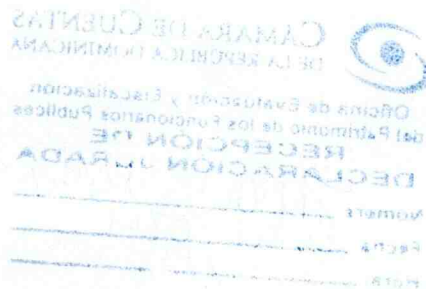 CÁMARA DE CUENTAS
DE LA REPÚBLICA DOMINICANA
Oficina de Evaluación y Fiscalización
del Patrimonio de los Funcionarios Públicos
RECEPCIÓN DE
DECLARACIÓN JURADA
Nombre
Fecha
Hora